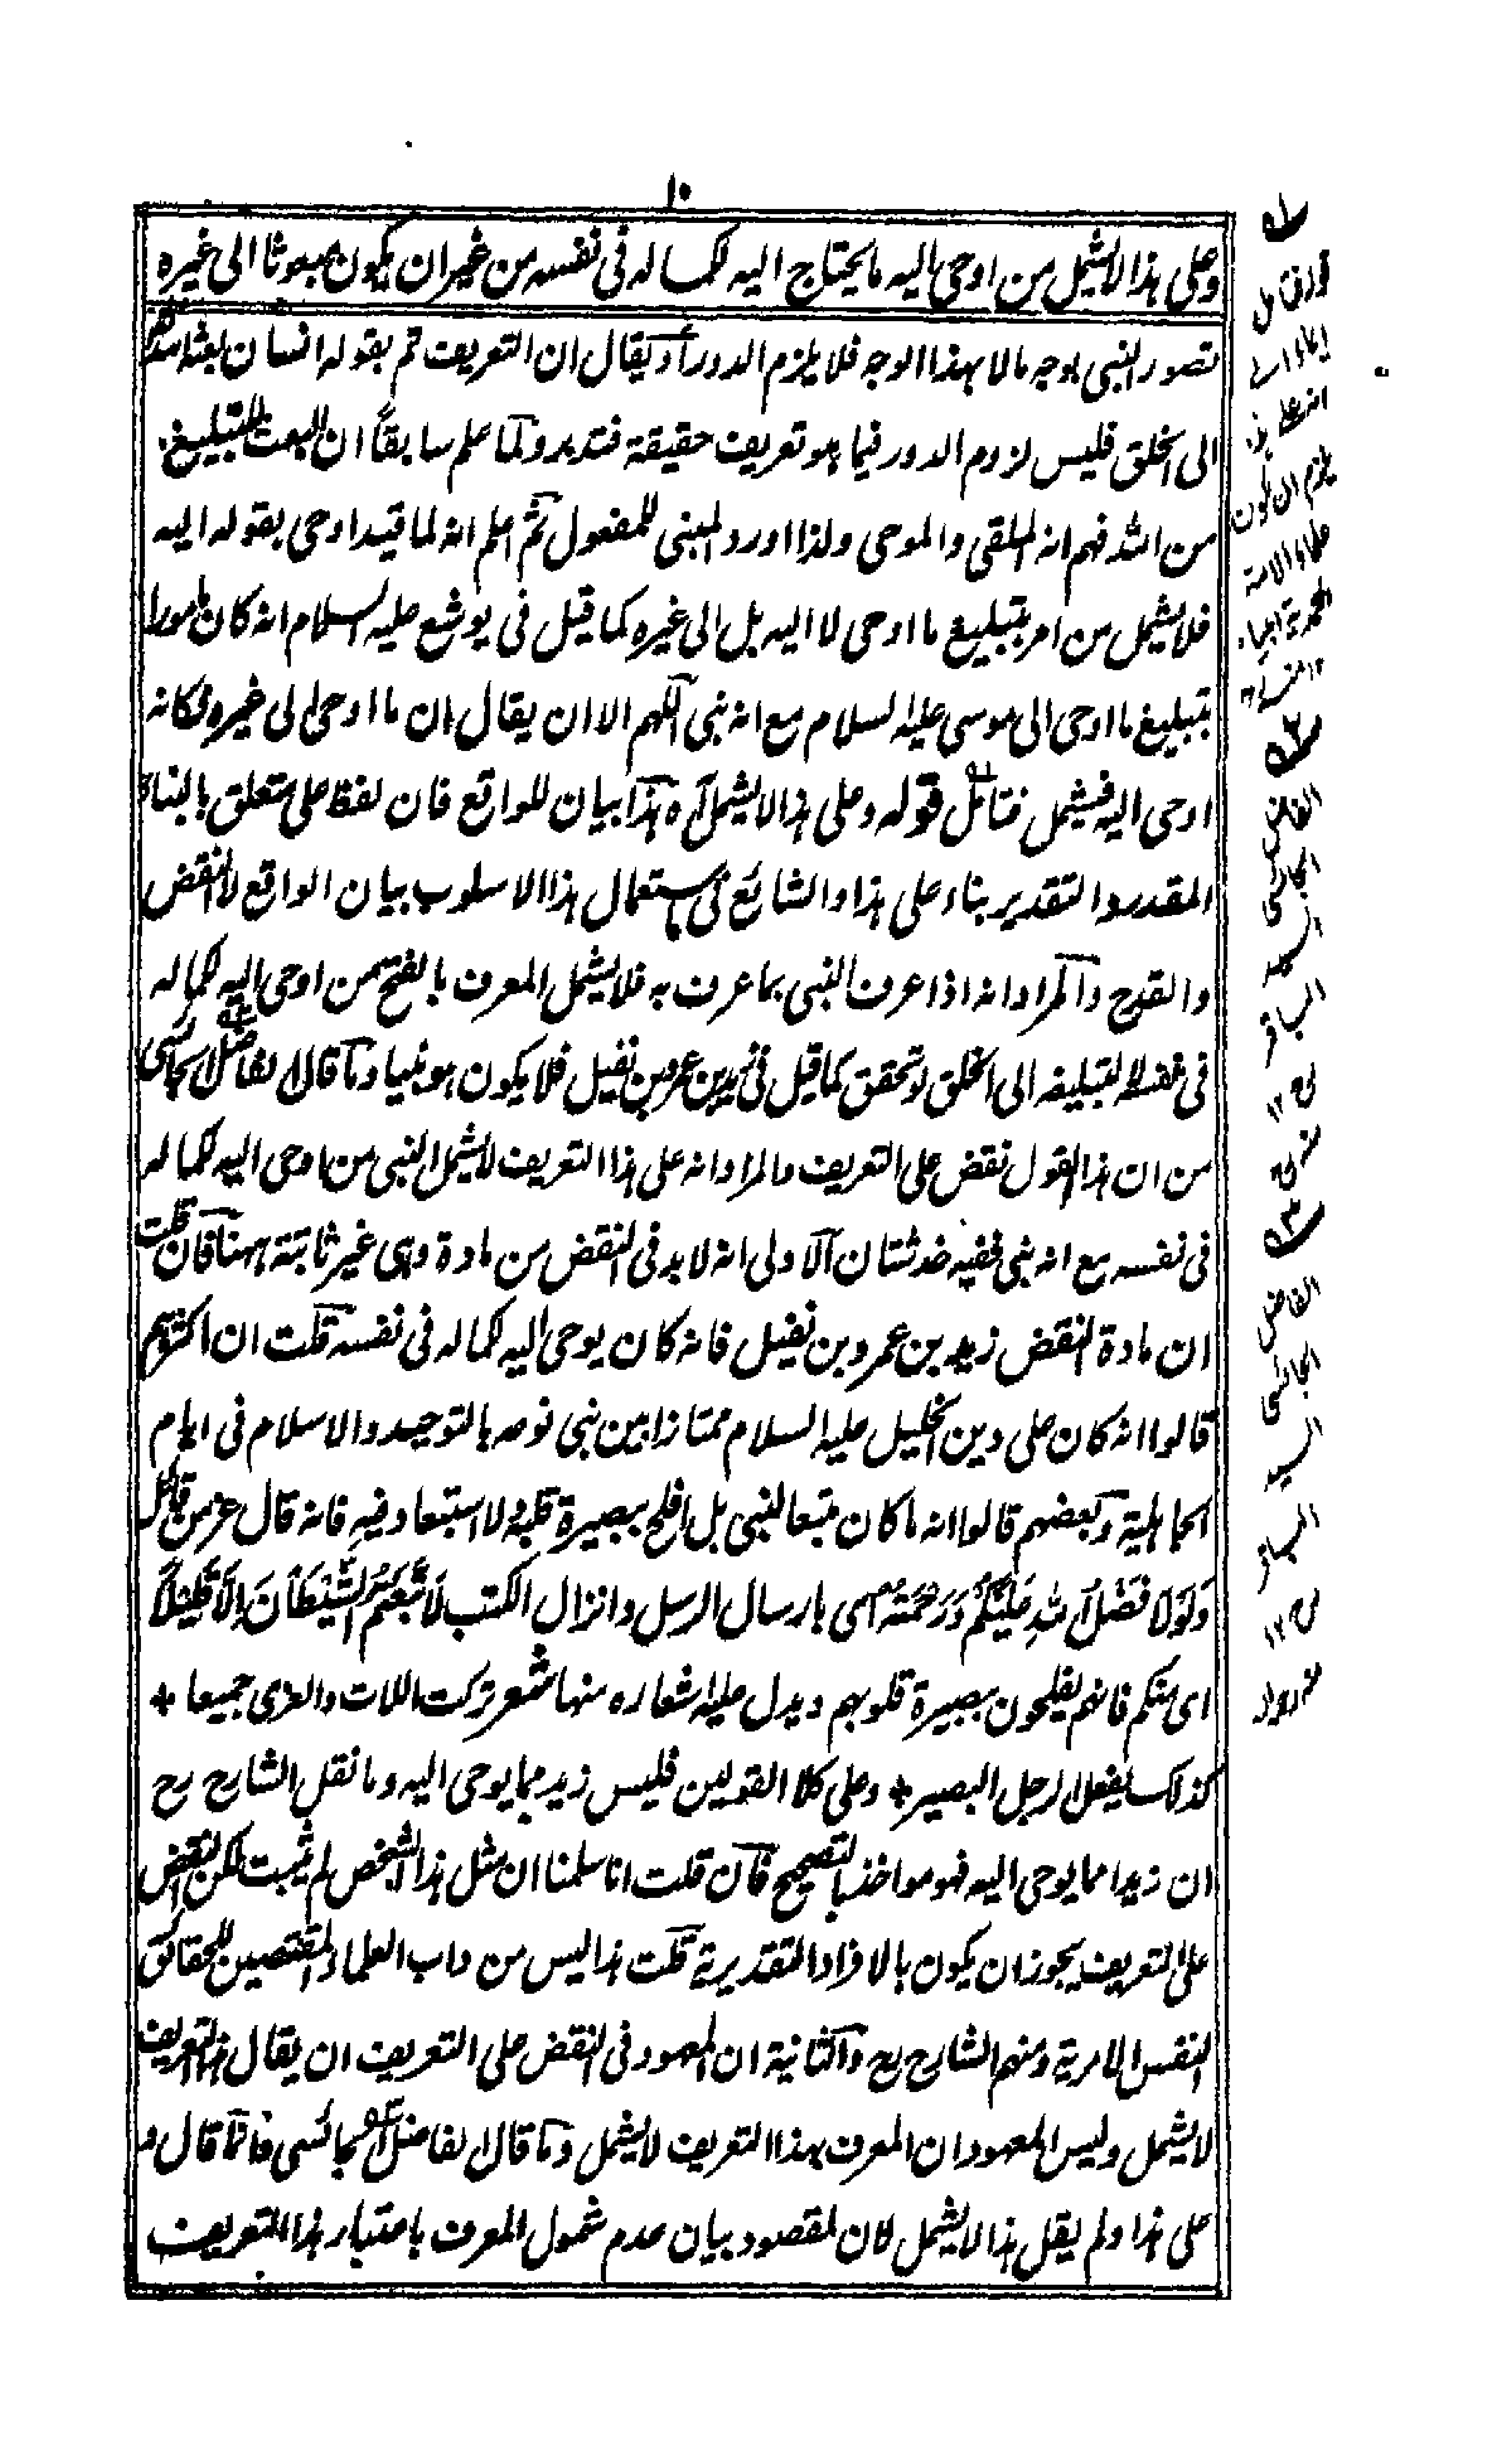 ١٠
وعلى هذا لا يشمل من اوحى اليه ما يحتاج اليه لكماله فى نفسه من غير ان يكون مبعوثا الى غيره
تصور النبى بوجه ما لا بهذا الوجه فلا يلزم الدور أو يقال ان التعريف تم بقوله انسان بعثه الله
الى الخلق فليس لزوم الدور فيما هو تعريف حقيقة فتدبر ولما علم سابقاً ان البعث للتبليغ
من الله فهم انه الملقى والموحى ولذا اورد المبنى للمفعول ثم اعلم انه لما قيد اوحى بقوله اليه
فلا يشمل من امر بتبليغ ما اوحى لا اليه بل الى غيره كما قيل فى يوشع عليه السلام انه كان مامورا
بتبليغ ما اوحى الى موسى عليه السلام مع انه نبى اللهم الا ان يقال ان ما اوحى الى غيره فكانه
اوحى اليه فيشمل فتامل قوله وعلى هذا لا يشمل آه هذا بيان للواقع فان لفظ على متعلق بالبناء
المقدر والتقدير بناء على هذا والشايع فى استعمال هذا الاسلوب بيان الواقع لا النقض
والقدح والمراد انه اذا عرف النبى بما عرف به فلا يشمل المعرف بالفتح من اوحى اليه لكماله
فى نفسه لا لتبليغه الى الخلق لو تحقق كما قيل فى زيد بن عمرو بن نفيل فلا يكون هو نبيا وما قال الفاضل الجائسى
من ان هذا القول نقض على التعريف والمراد انه على هذا التعريف لا يشمل النبى من اوحى اليه لكماله
فى نفسه مع انه نبى ففيه خدشتان الاولى انه لا بد فى النقض من مادة وهى غير ثابتة ههنا فان قلت
ان مادة النقض زيد بن عمرو بن نفيل فانه كان يوحى اليه لكماله فى نفسه قلت ان اكثرهم
قالوا انه كان على دين الخليل عليه السلام ممتازا بين بنى نوعه بالتوحيد والاسلام فى ايام
الجاهلية وبعضهم قالوا انه ما كان متبعا لنبى بل افلح ببصيرة قلبه ولا استبعاد فيه فانه قال عز من قائل
وَلَوْلَا فَضْلُ اللهِ عَلَيْكُمْ وَرَحْمَتُهُ اى بارسال الرسل وانزال الكتب لَاتَّبَعْتُمُ الشَّيْطَانَ اِلَّا قَلِيْلًا
اى منكم فانهم يفلحون ببصيرة قلوبهم ويدل عليه اشعاره منها شعر تركت اللات والعزى جميعا +
كذلك يفعل الرجل البصير + وعلى كلا القولين فليس زيد مما يوحى اليه وما نقل الشارح رح
ان زيدا مما يوحى اليه فهو مواخذ بالتصحيح فان قلت انا سلمنا ان مثل هذا الشخص لم يثبت لكن النقض
على التعريف يجوز ان يكون بالافراد التقديرية قلت هذا ليس من داب العلماء المقتصين للحقائق
النفس الامرية ومنهم الشارح رح والثانية ان المعهود فى النقض على التعريف ان يقال هذا التعريف
لا يشمل وليس المعهود ان المعرف بهذا التعريف لا يشمل وما قال الفاضل الجائسى فانما قال و
على هذا ولم يقل هذا لا يشمل لان المقصود بيان عدم شمول المعرف باعتبار هذا التعريف
يلزم ان يكون
علماء الامة
المحمدية انبياء
الفاضل
الجائسى
السيد
الباقر
الفاضل
الجائسى
السيد
الباقر